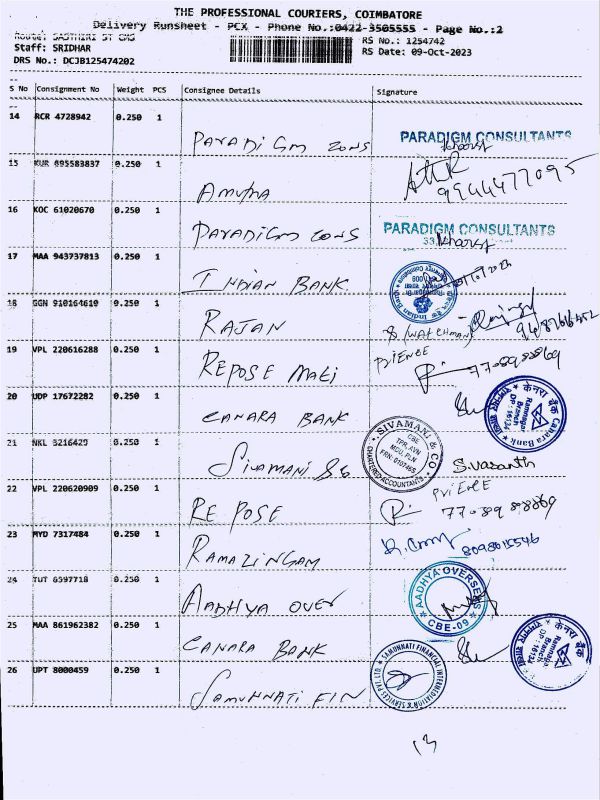 THE PROFESSIONAL COURIERS, COIMBATORE
Delivery Runsheet - PCX - Phone No.:0422-3505555 - Page No.:2
Route: SASTHIRI ST CMS
RS No.: 1254742
Staff: SRIDHAR
RS Date: 09-Oct-2023
DRS No.: DCJB125474202
S No Consignment No Weight PCS Consignee Details Signature
14 RCR 4728942 0.250 1
PARADIGM CONS PARADIGM CONSULTANTS
15 KUR 695583837 0.250 1
AMUTHA 9944477095
16 KOC 61020670 0.250 1
PARADIGM CONS PARADIGM CONSULTANTS
17 MAA 943737813 0.250 1
INDIAN BANK Indian Bank
18 GGN 910164610 0.250 1
RAJAN (WATCHMAN)
19 VPL 220616288 0.250 1
REPOSE MATI PRIENCE 77089 88869
20 UDP 17672282 0.250 1
CANARA BANK केनरा बैंक Canara Bank Ramnagar Branch DP: 16134
21 NKL 3216429 0.250 1
SIVAMANI & Co SIVAMANI & CO CHARTERED ACCOUNTANTS CBE, TPR, AVN MDU, PLN S. Vasanth
22 VPL 220620909 0.250 1
REPOSE PRIENCE 77089 88869
23 MYD 7317484 0.250 1
RAMALINGAM 8098015546
24 TUT 6597718 0.250 1
AADHYA OVER AADHYA OVERSEAS CBE-09
25 MAA 861962382 0.250 1
CANARA BANK केनरा बैंक Ramnagar Branch DP: 16134
26 UPT 8000459 0.250 1
SAMUNNATI FIN SAMUNNATI FINANCIAL INTERMEDIATION & SERVICES PVT. LTD.
13